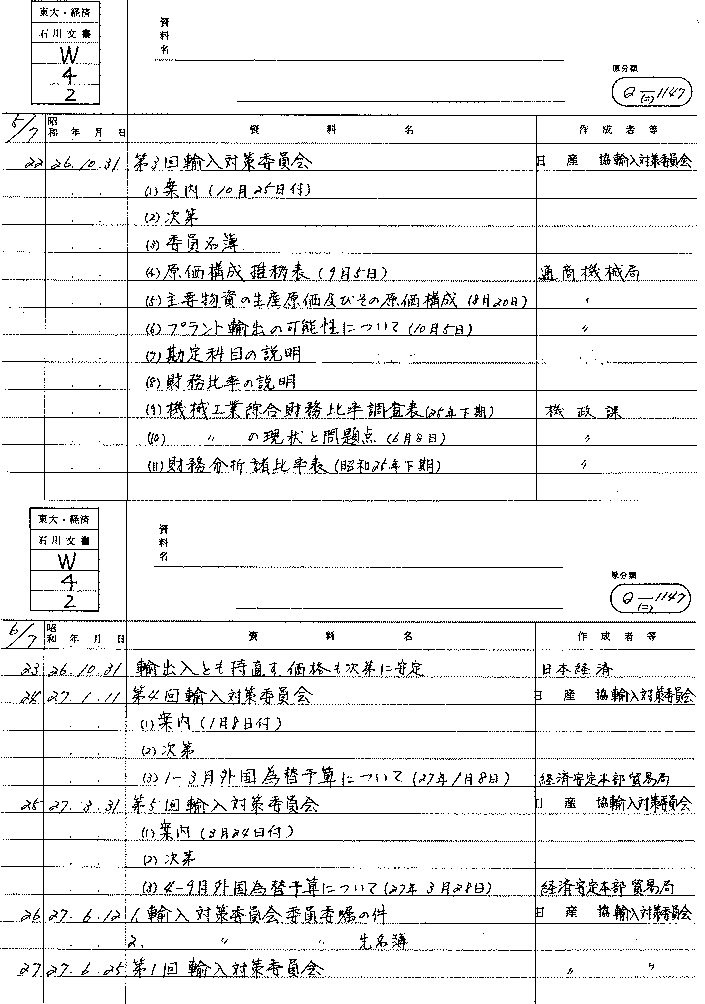 東大・経済
石川文書
W
4
2
資料名
原分類
Q (二) 1147
5/7 昭和 年 月 日 資料名 作成者等
22 26.10.31 第3回輸入対策委員会 日産協輸入対策委員会
(1) 案内 (10月25日付)
(2) 次第
(3) 委員名簿
(4) 原価構成推移表 (9月5日) 通商機械局
(5) 主要物資の生産原価及びその原価構成 (8月20日) 〃
(6) プラント輸出の可能性について (10月5日) 〃
(7) 勘定科目の説明
(8) 財務比率の説明
(9) 機械工業綜合財務比率調査表 (25年下期) 機政課
(10) 〃 の現状と問題点 (6月8日) 〃
(11) 財務分析諸比率表 (昭和25年下期) 〃
東大・経済
石川文書
W
4
2
資料名
原分類
Q (二) 1147
6/7 昭和 年 月 日 資料名 作成者等
23 26.10.31 輸出入とも持直す、価格も次第に安定 日本経済
24 27.1.11 第4回輸入対策委員会 日産協輸入対策委員会
(1) 案内 (1月8日付)
(2) 次第
(3) 1-3月外国為替予算について (27年1月8日) 経済安定本部貿易局
25 27.3.31 第5回輸入対策委員会 日産協輸入対策委員会
(1) 案内 (3月24日付)
(2) 次第
(3) 4-9月外国為替予算について (27年3月28日) 経済安定本部貿易局
26 27.6.12 1. 輸入対策委員会委員委嘱の件 日産協輸入対策委員会
2. 〃 〃 先名簿
27 27.6.25 第1回輸入対策委員会 〃 〃